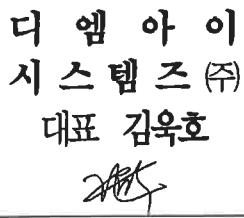 디 엠 아 이
시 스 템 즈 ㈜
대표 김욱호